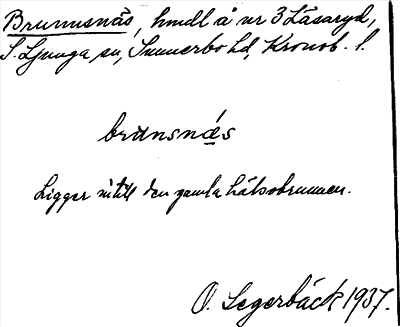 Brunnsnäs, hmdl å nr 3 Låsaryd,
S. Ljunga sn, Sunnerbo hd, Kronob. l.
brunsnä̱s
Ligger intill den gamla hälsobrunnen.
O. Segerbäck 1937.